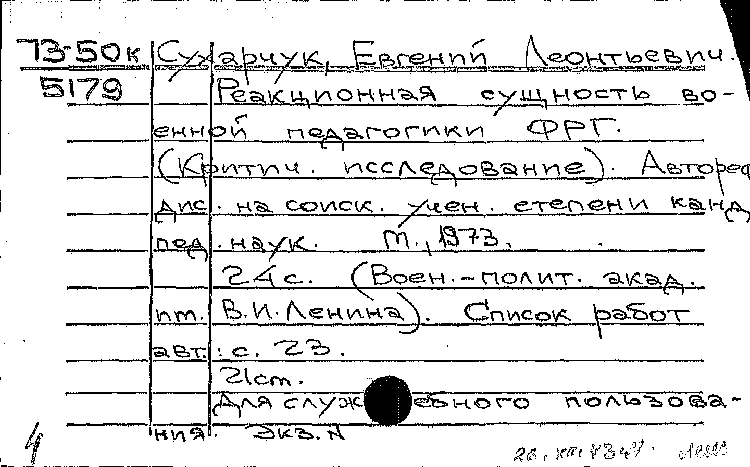 73-50к Сухарчук, Евгений Леонтьевич.
5179 Реакционная сущность во-
енной педагогики ФРГ.
(Критич. исследование). Автореф
дис. на соиск. учен. степени канд
пед. наук. М., 1973.
24 с. (Воен.-полит. акад.
им. В.И. Ленина). Список работ
авт.: с. 23.
21 cm.
Для служебного пользова-
ния. Экз. N
4